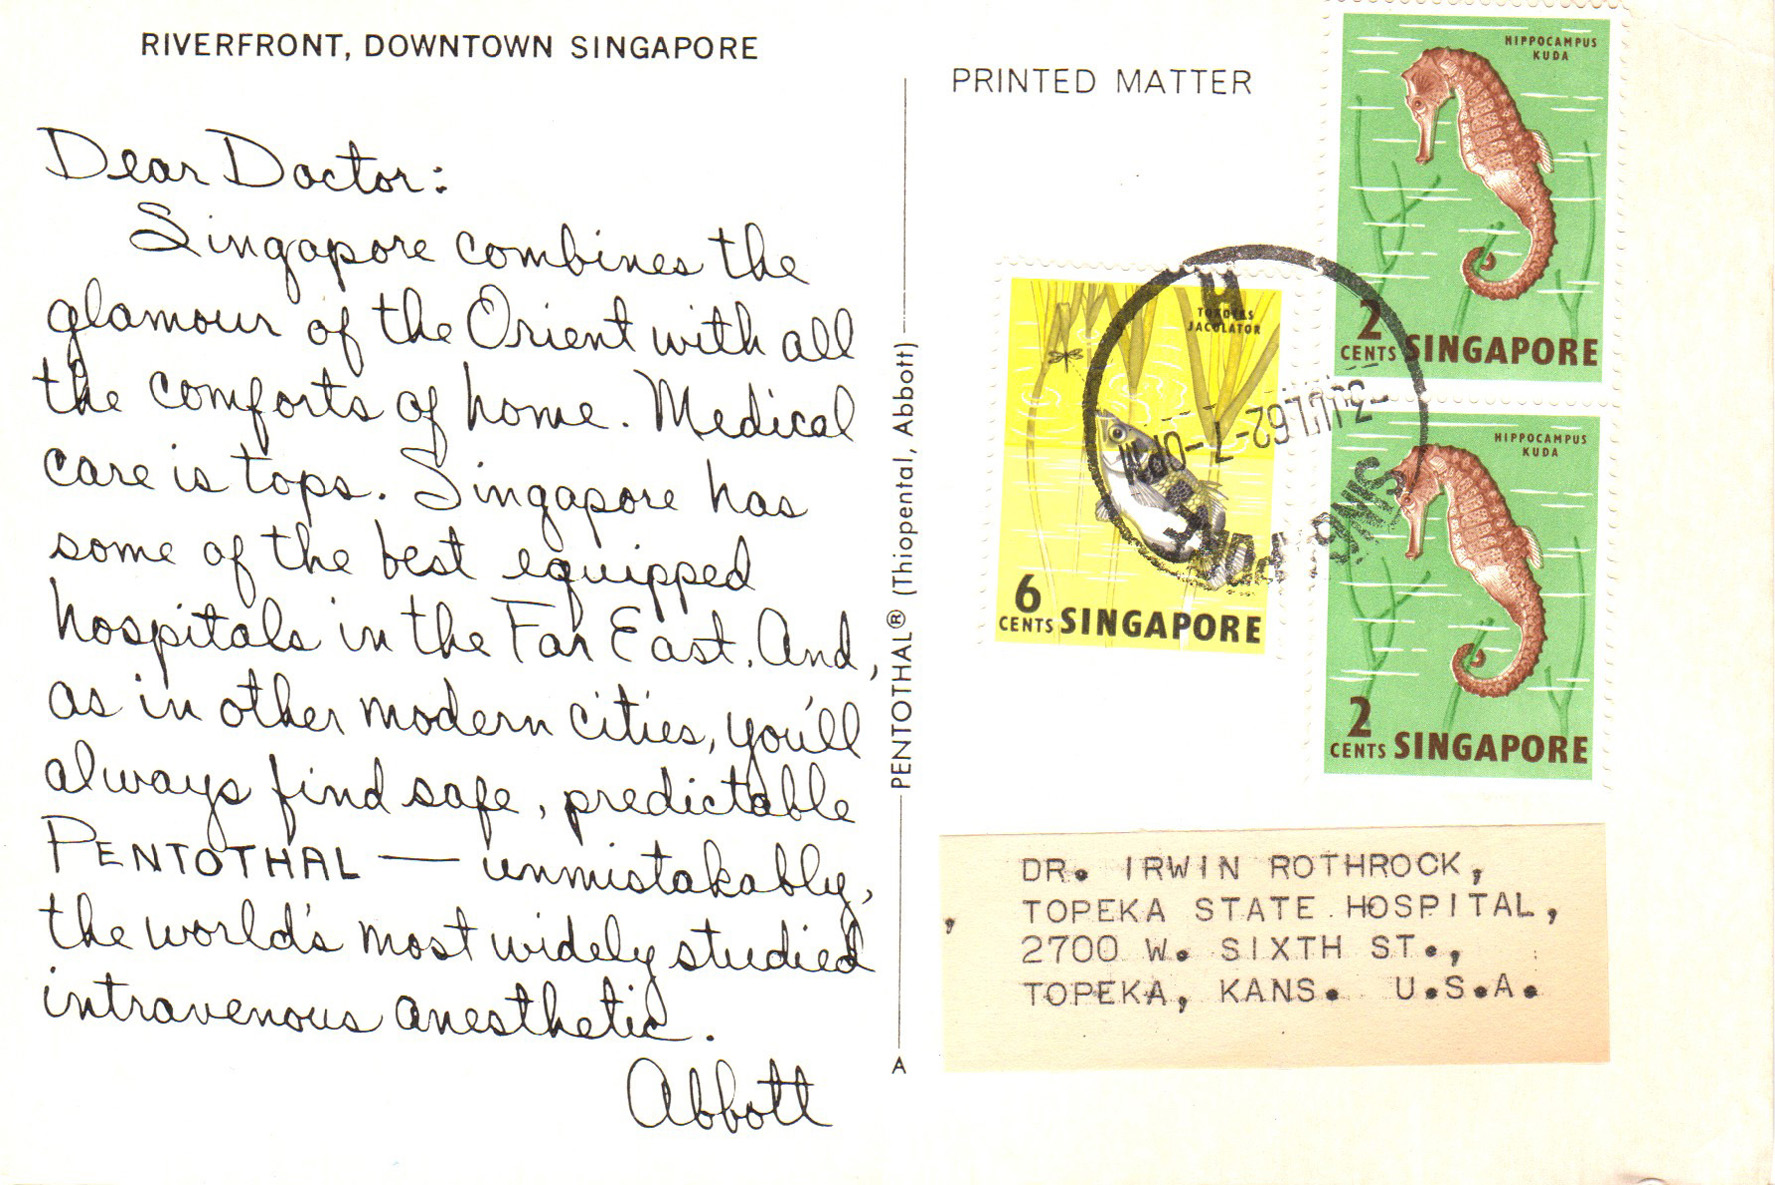 RIVERFRONT, DOWNTOWN SINGAPORE
Dear Doctor:
Singapore combines the
glamour of the Orient with all
the comforts of home. Medical
care is tops. Singapore has
some of the best equipped
hospitals in the Far East. And,
as in other modern cities, you'll
always find safe, predictable
PENTOTHAL — unmistakably,
the world's most widely studied
intravenous anesthetic.
Abbott
PENTOTHAL® (Thiopental, Abbott)
A
PRINTED MATTER
HIPPOCAMPUS
KUDA
2
CENTS SINGAPORE
TOXOTES
JACULATOR
6
CENTS SINGAPORE
HIPPOCAMPUS
KUDA
2
CENTS SINGAPORE
H
SINGAPORE
DR. IRWIN ROTHROCK,
, TOPEKA STATE HOSPITAL,
2700 W. SIXTH ST.,
TOPEKA, KANS. U.S.A.